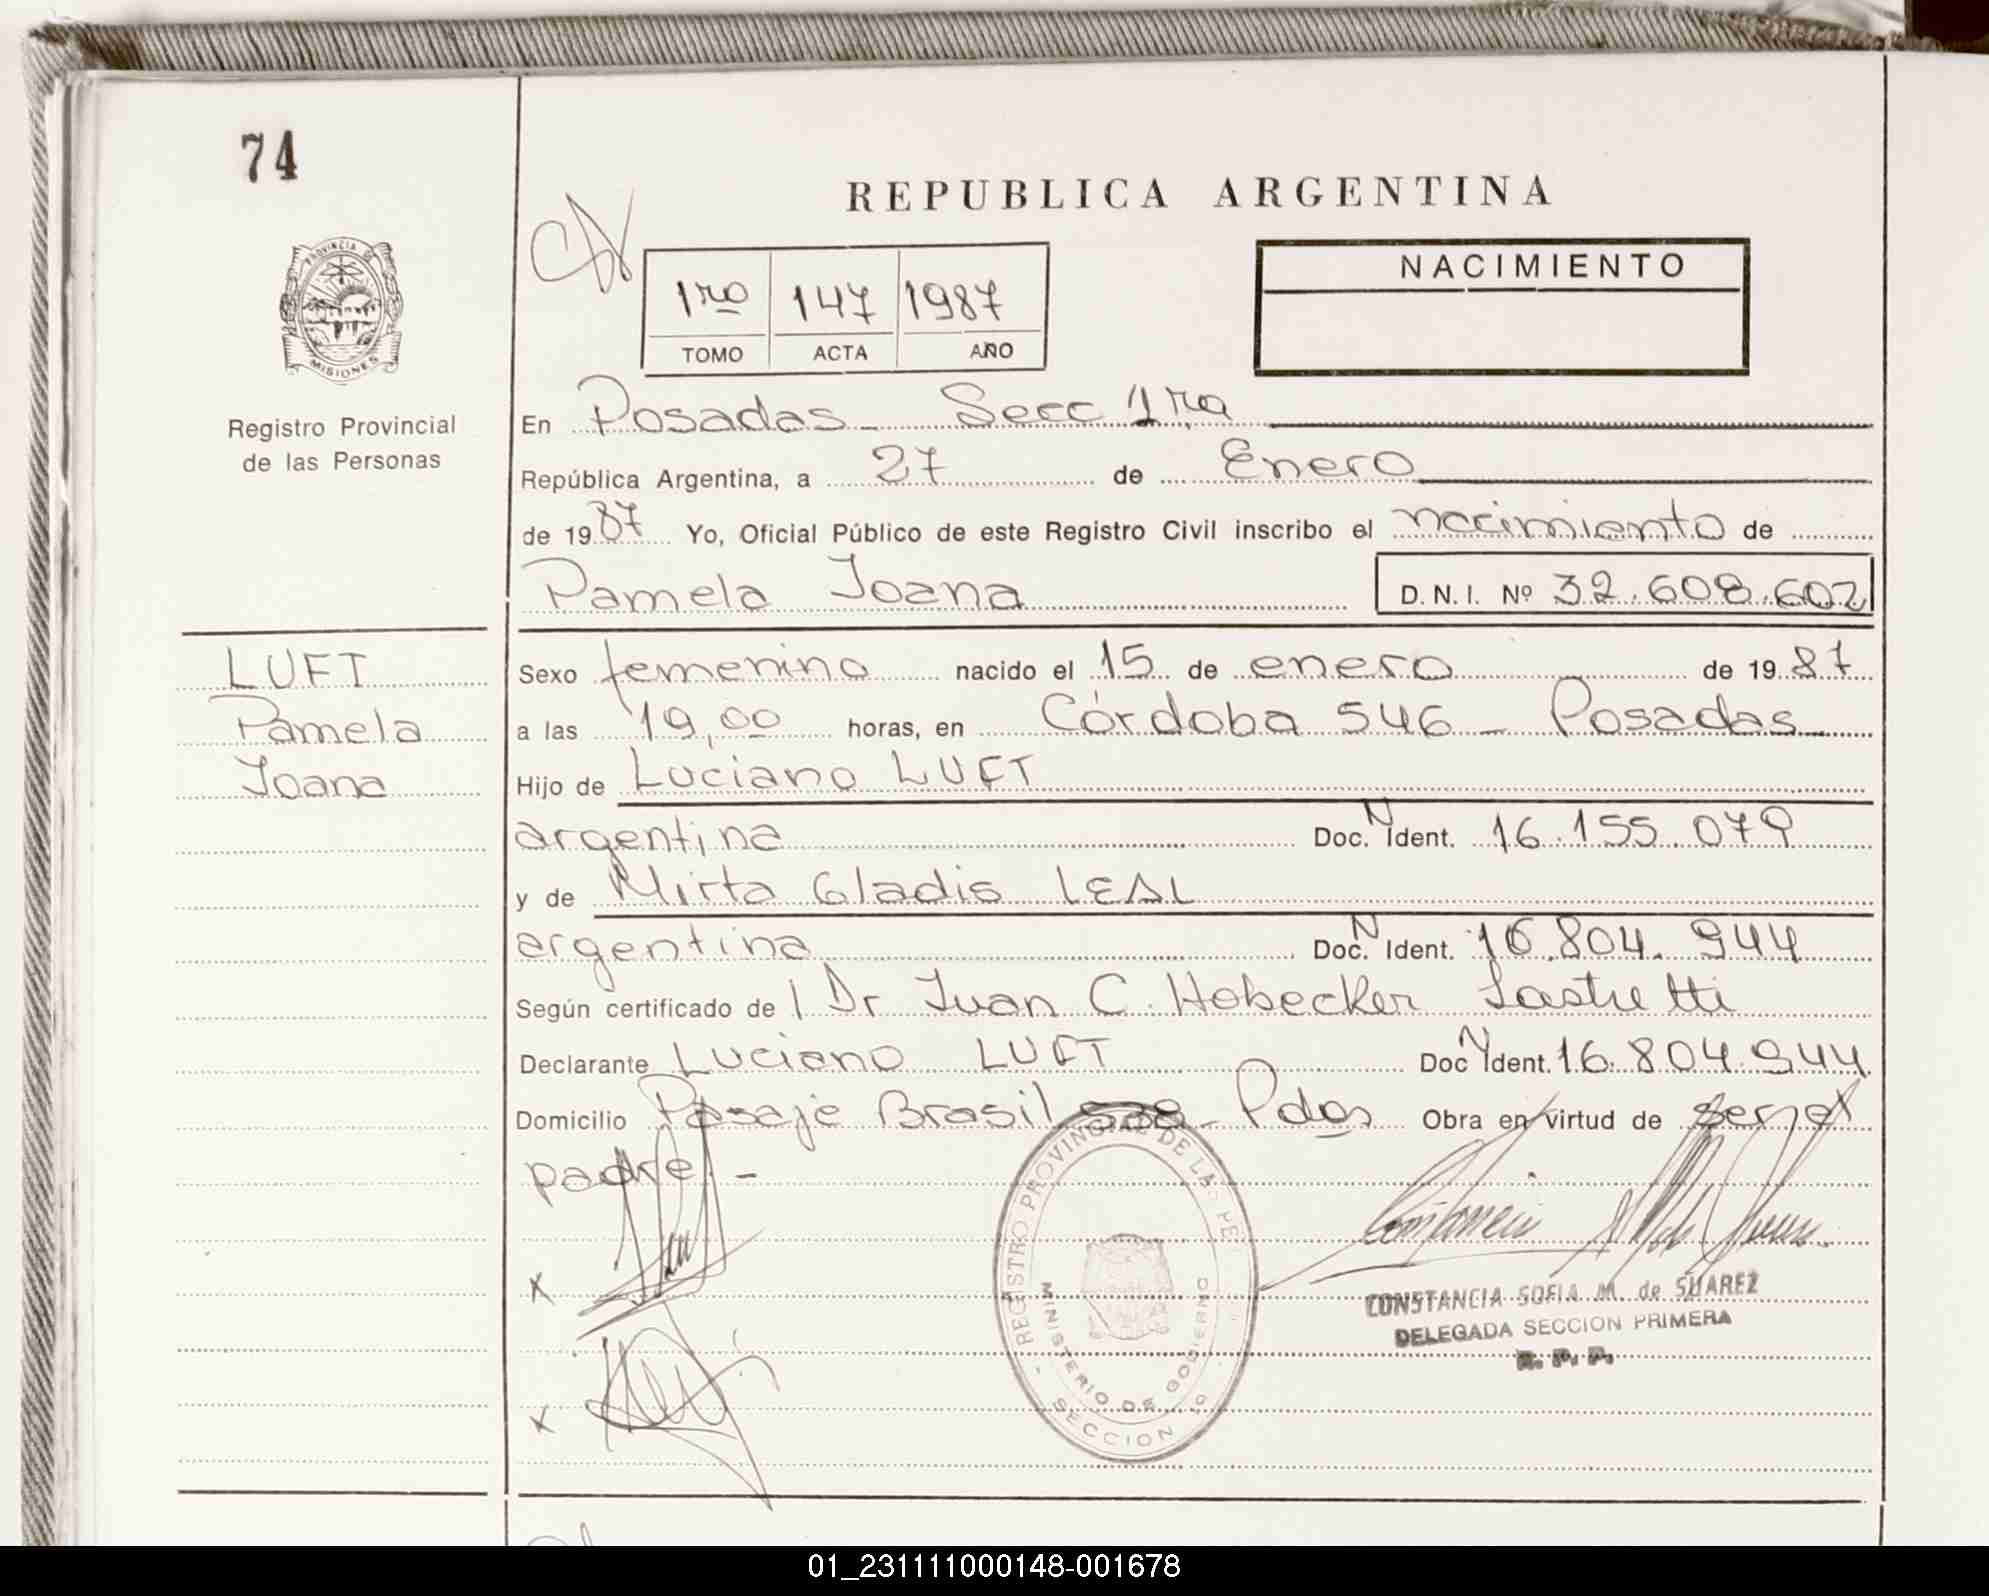 74
REPUBLICA ARGENTINA
PROVINCIA DE
MISIONES
Registro Provincial
de las Personas
1ro 147 1987
TOMO ACTA AÑO
NACIMIENTO
En Posadas - Secc 1ra
República Argentina, a 27 de Enero
de 1987 Yo, Oficial Público de este Registro Civil inscribo el nacimiento de
Pamela Joana D.N.I. Nº 32.608.602
LUFT
Pamela
Joana
Sexo femenino nacido el 15 de enero de 1987
a las 19,00 horas, en Córdoba 546 - Posadas
Hijo de Luciano LUFT
argentina Doc. N Ident. 16.155.079
y de Mirta Gladis LEAL
argentina Doc. N Ident. 16.804.944
Según certificado de Dr Juan C. Hobecker Sastretti
Declarante Luciano LUFT Doc N Ident. 16.804.944
Domicilio Pasaje Brasil 508 - Pdas Obra en virtud de ser el
padre. -
x
x
REGISTRO PROVINCIAL DE LAS PER
MINISTERIO DE GOBIERNO
- SECCION 1º -
CONSTANCIA SOFIA M. de SUAREZ
DELEGADA SECCION PRIMERA
R. P. P.
01_231111000148-001678